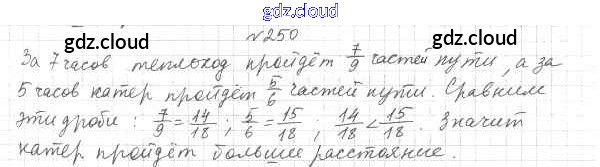 gdz.cloud
№250
gdz.cloud gdz.cloud
За 7 часов теплоход пройдёт 7/9 частей пути, а за
5 часов катер пройдём 5/6 частей пути. Сравним
эти дроби: 7/9 = 14/18; 5/6 = 15/18; 14/18 < 15/18. Значит
катер пройдёт большее расстояние.
gdz.cloud gdz.cloud